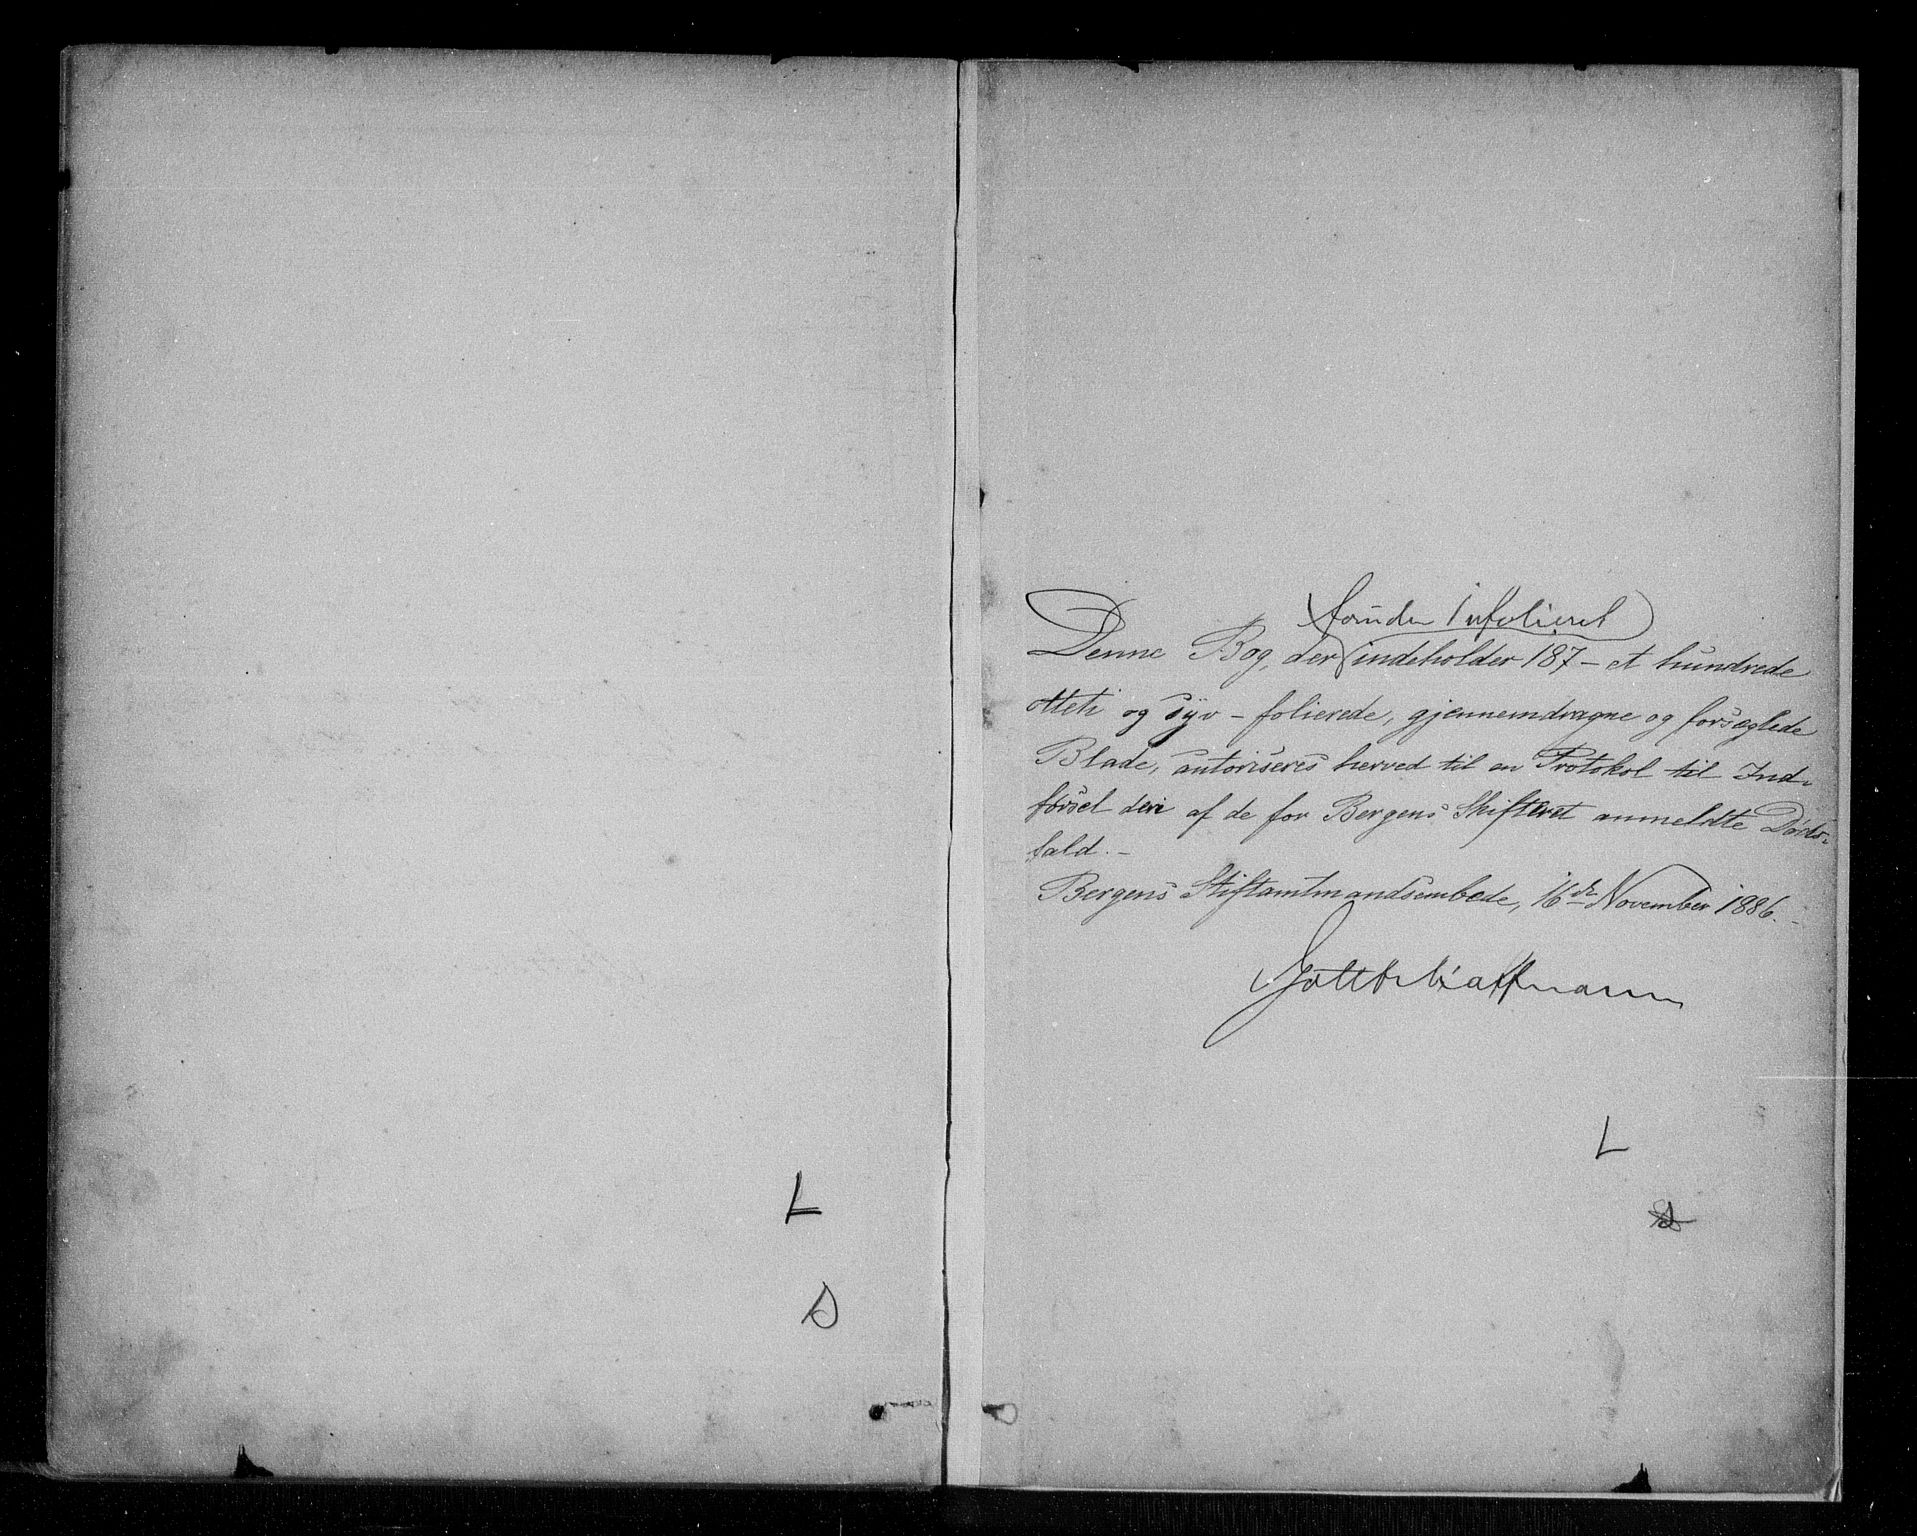 foruden 1 ufolieret
Denne Bog, der indeholder 187 - et hundrede
otteti og syv - folierede, gjennemdragne og forseglede
Blade, autoriseres herved til en Protokol til Ind-
førsel deri af de for Bergens Skifteret anmeldte Døds-
fald. -
Bergens Stiftamtmandsembede, 16de November 1886. -
L
S
L
S